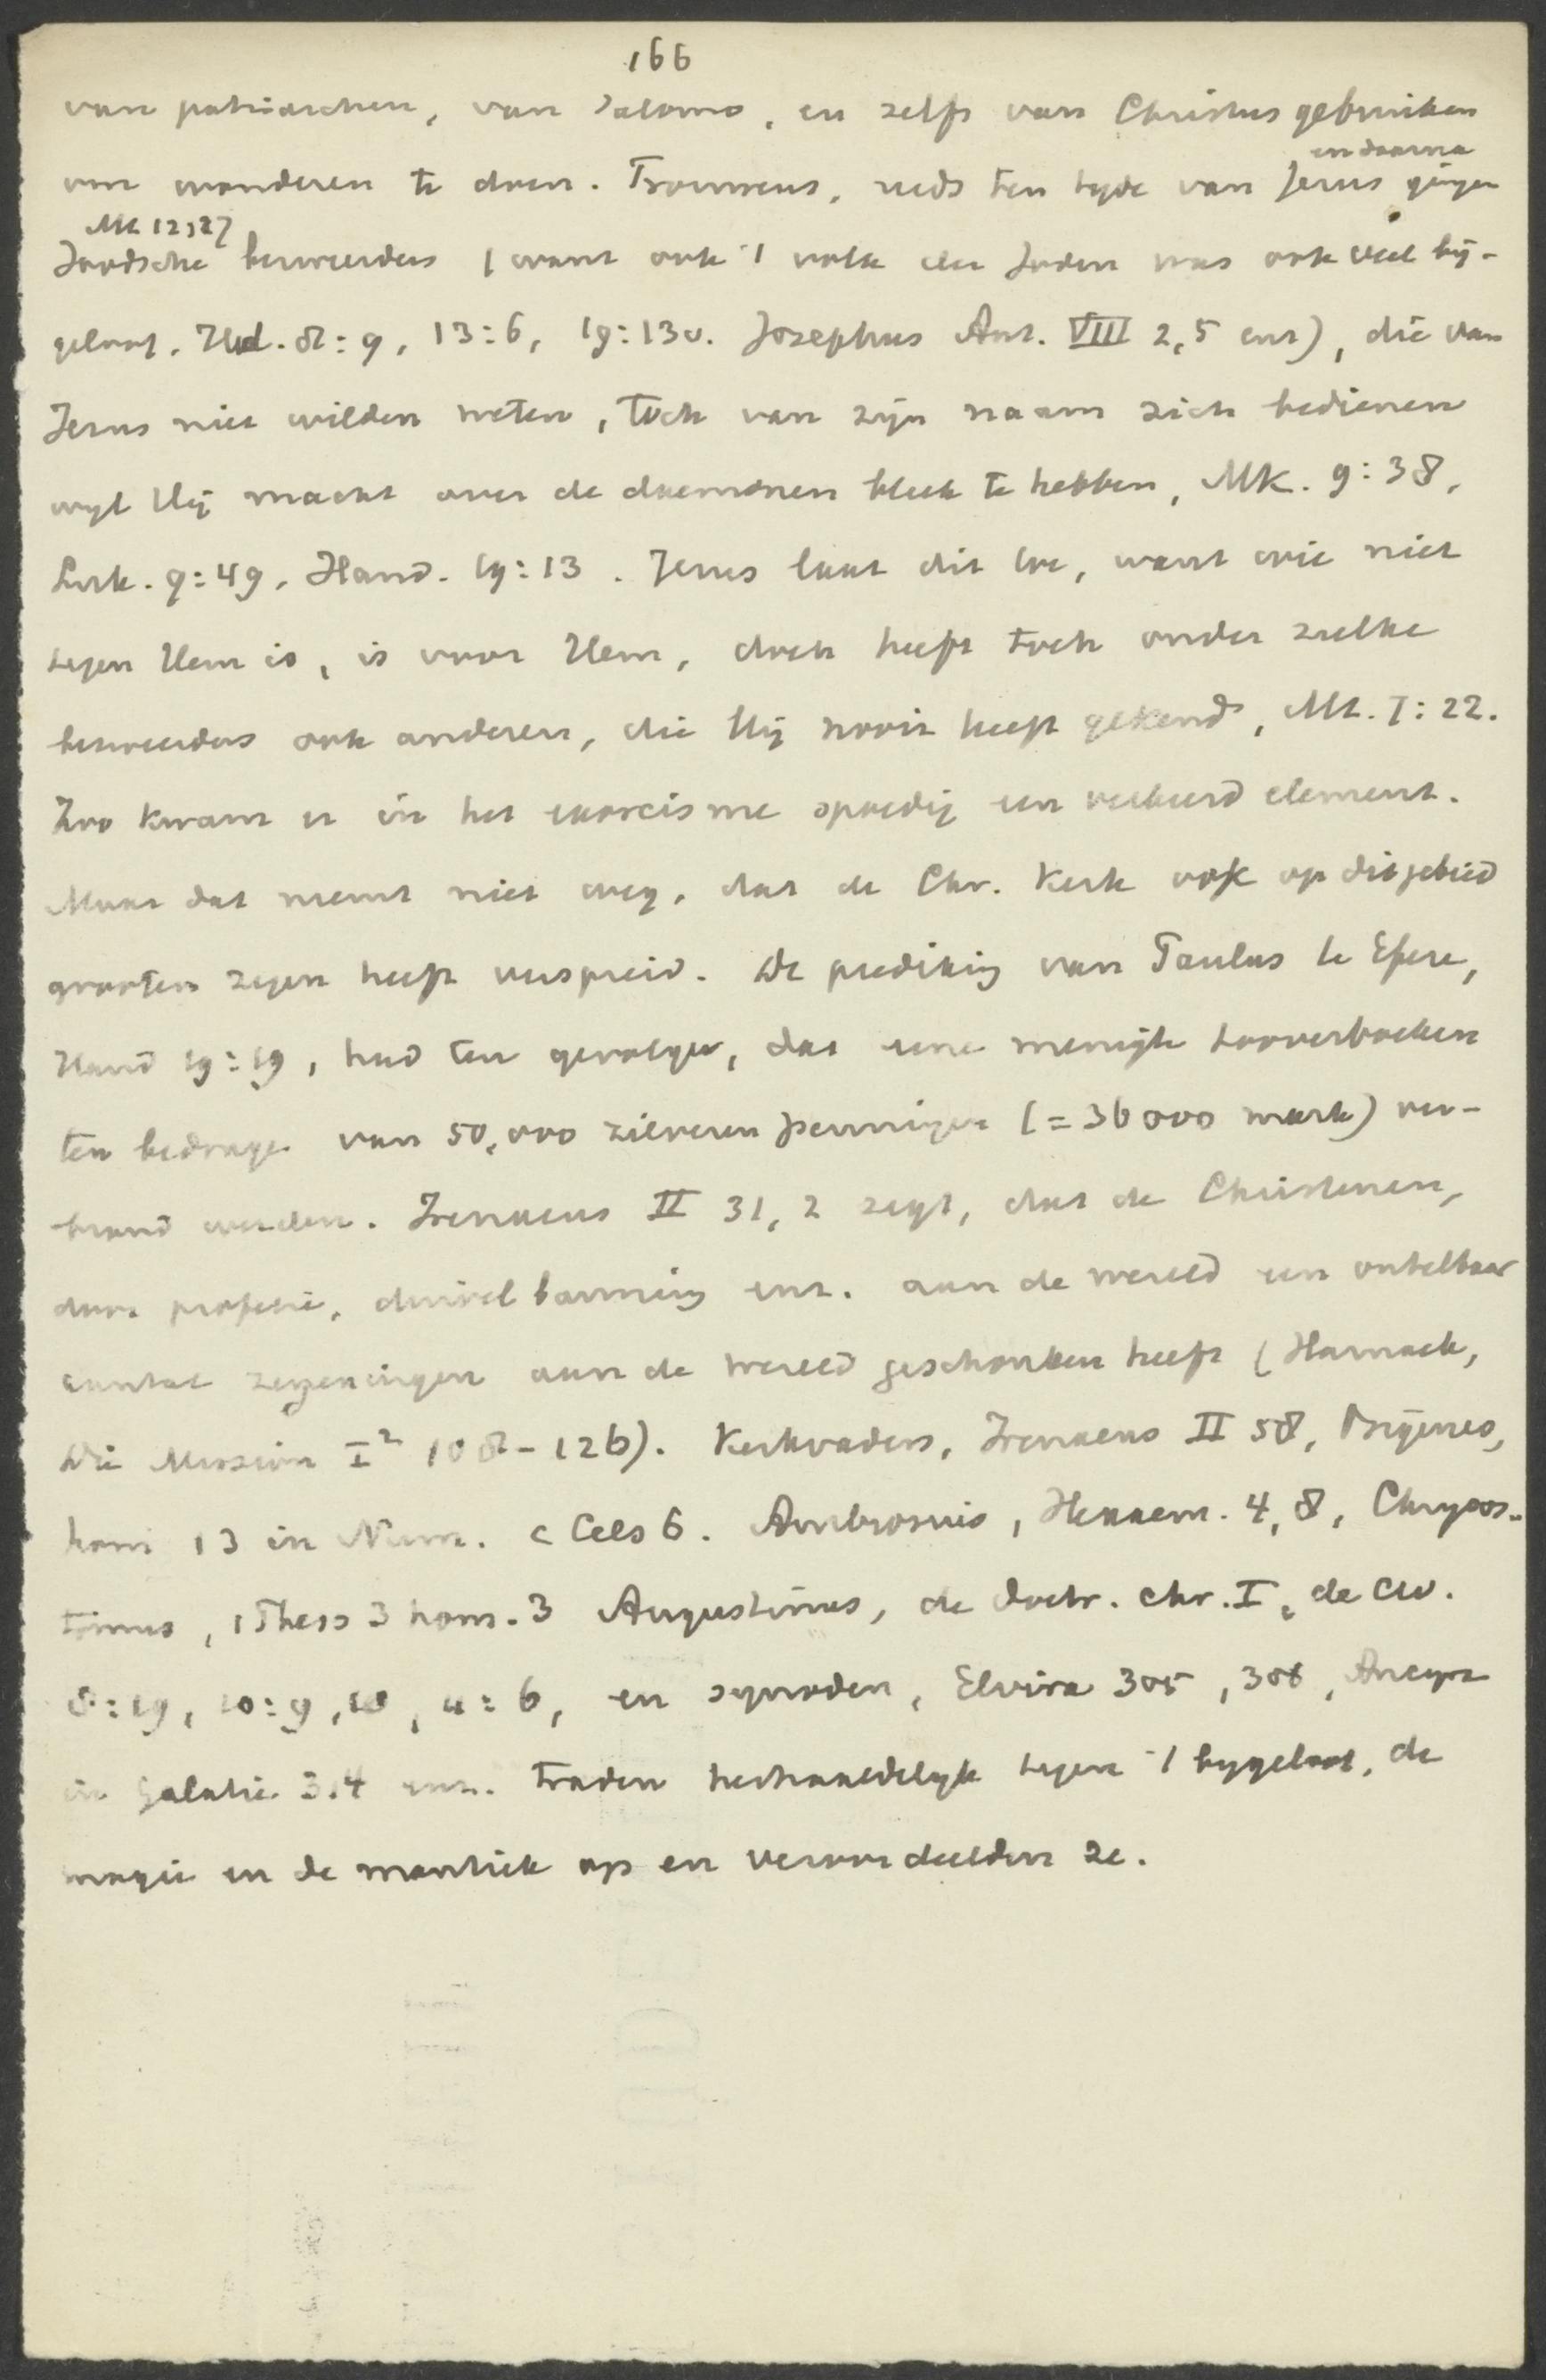 166
van patriarchen, van Salomo, en zelfs van Christus gebruiken
om wonderen te doen. Trouwens, reeds ten tyde van Jezus gingen
en daarna
Mt 12,27
Joodsche bezweerders (want ook 't volk der Joden was ook veel bij-
geloof, Hd. 8:9, 13:6, 19:13v. Josephus Ant. VIII 2,5 enz), die van
Jezus niet wilden weten, toch van zijn naam zich bedienen
wyl Hij macht over de daemonen bleek te hebben, Mk. 9:38,
Luk. 9:49, Hand. 19:13. Jezus laat dit toe, want wie niet
tegen Hem is, is voor Hem, doch heeft toch onder zulke
bezweerders ook anderen, die Hij nooit heeft gekend, Mt. 7:22.
Zoo kwam er in het exorcisme spoedig een verkeerd element.
Maar dat neemt niet weg, dat de Chr. Kerk ook op dit gebied
grooten zegen heeft verspreid. De prediking van Paulus te Efeze,
Hand 19:19, had ten gevolge, dat eene menigte tooverboeken
ten bedrage van 50,000 zilveren penningen (= 36000 mark) ver-
brand werden. Irenaeus II 31,2 zegt, dat de Christenen,
door profetie, duivelbanning enz. aan de wereld een ontelbaar
aantal zegeningen aan de wereld geschonken heeft (Harnack,
Die Mission I² 108-126). Kerkvaders, Irenaeus II 58, Origenes,
hom 13 in Num. c Cels 6. Ambrosius, Hexaem. 4,8, Chrysos-
tomus, 1 Thess 3 hom. 3 Augustinus, de doctr. chr. I, de civ.
8:19, 10:9,10, 11:6, en synoden, Elvira 305, 306, Ancyra
in Galatie 314 enz. traden herhaaldelijk tegen 't bygeloof, de
magie en de mantiek op en veroordeelden ze.